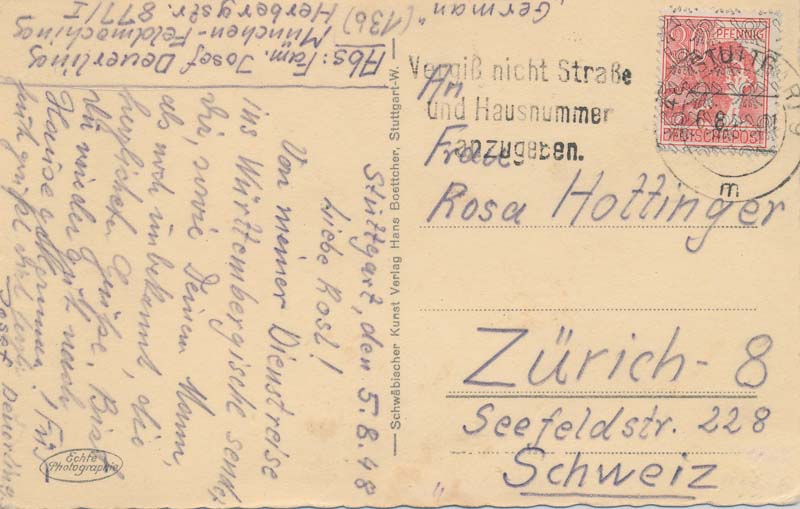 Abs: Fam. Josef Deuerling
München-Feldmoching
(13b) Herbergstr. 877/I
"German"
Stuttgart, den 5.8.48
Liebe Rosl!
Von meiner Dienstreise
ins Württembergische sende
Dir, sowie Deinem Mann,
als noch unbekannt, die
herzlichsten Grüße. Bist
Du wieder gut nach
Hause gekommen? Für
heute grüßt Dich
Josef Deuerling
Echte
Photographie
Schwäbischer Kunst Verlag Hans Boettcher, Stuttgart-W.
Vergiß nicht Straße
und Hausnummer
anzugeben.
STUTTGART 9
6.8.
m
PFENNIG
DEUTSCHE POST
An
Frau
Rosa Hottinger
Zürich-8
Seefeldstr. 228
Schweiz